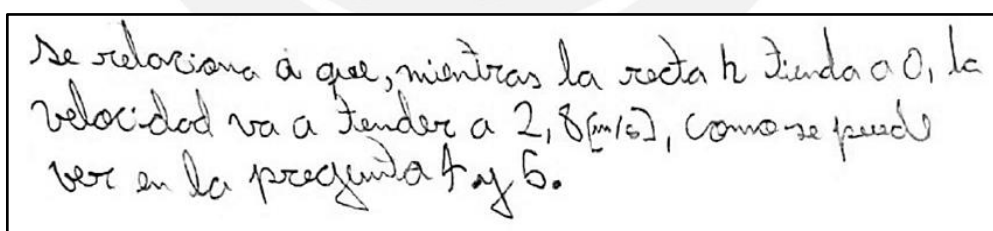 se relaciona a que, mientras la recta h tienda a 0, la
velocidad va a tender a 2,8[m/s], como se puede
ver en la pregunta 4 y 5.